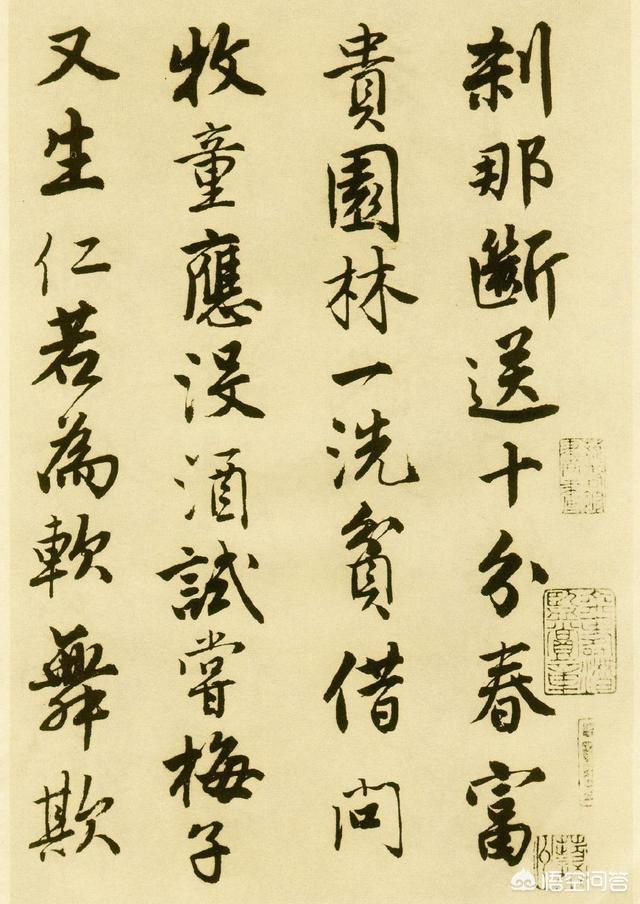 刹那断送十分春富
貴園林一洗貧借問
牧童應没酒試嘗梅子
又生仁若為軟舞欺
悟空问答